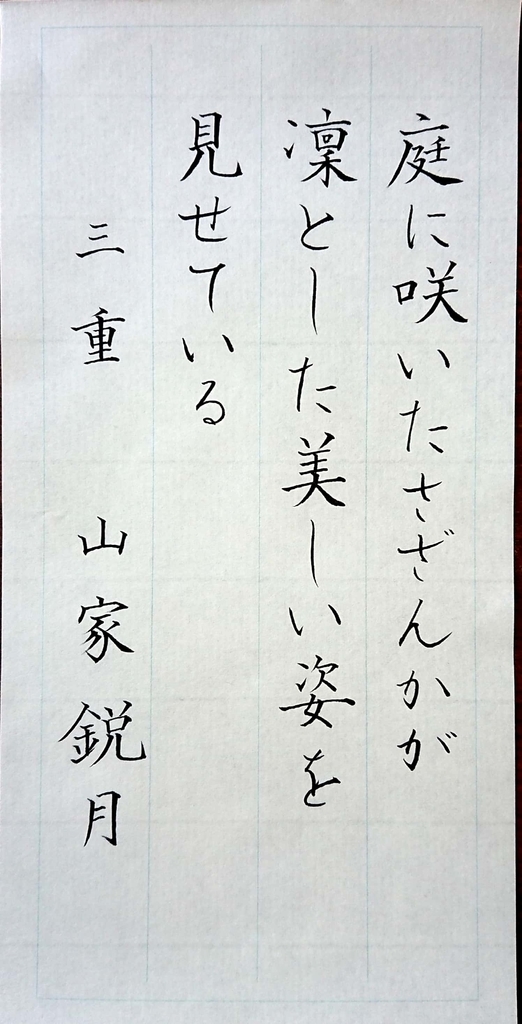 庭に咲いたさざんかが
凜とした美しい姿を
見せている
三重 山家鋭月